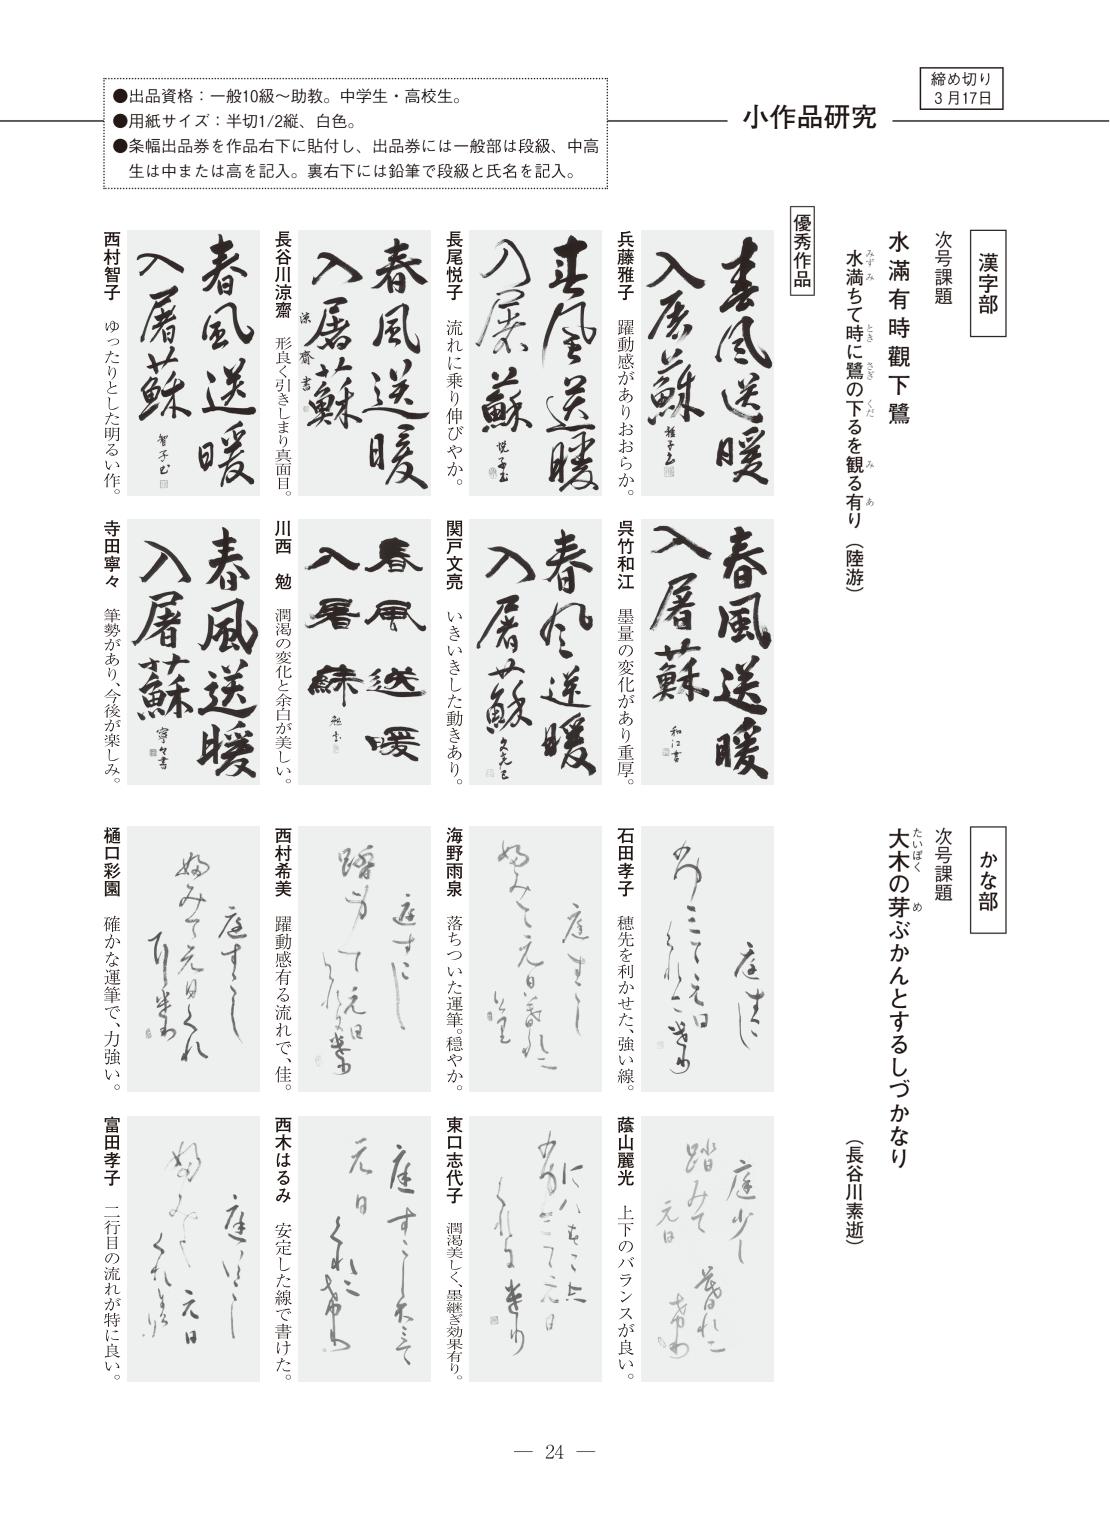 締め切り
3月17日
小作品研究
●出品資格：一般10級～助教。中学生・高校生。
●用紙サイズ：半切1/2縦、白色。
●条幅出品券を作品右下に貼付し、出品券には一般部は段級、中高
生は中または高を記入。裏右下には鉛筆で段級と氏名を記入。
漢字部
次号課題
水滿有時觀下鷺
水満ちて時に鷺の下るを観る有り（陸游）
みずみ とき さぎ くだ み あ
優秀作品
春風送暖
入屠蘇
雅子書
兵藤雅子 躍動感がありおおらか。
春風送暖
入屠蘇
悦子書
長尾悦子 流れに乗り伸びやか。
春風送暖
入屠蘇
涼齋書
長谷川涼齋 形良く引きしまり真面目。
春風送暖
入屠蘇
智子書
西村智子 ゆったりとした明るい作。
春風送暖
入屠蘇
和江書
呉竹和江 墨量の変化があり重厚。
春風送暖
入屠蘇
関戸文亮 いきいきした動きあり。
春風送暖
入屠蘇
勉書
川西 勉 潤渇の変化と余白が美しい。
春風送暖
入屠蘇
寧々書
寺田寧々 筆勢があり、今後が楽しみ。
かな部
次号課題
大木の芽ぶかんとするしづかなり
たいぼく め
（長谷川素逝）
石田孝子 穂先を利かせた、強い線。
海野雨泉 落ちついた運筆。穏やか。
西村希美 躍動感有る流れで、佳。
樋口彩園 確かな運筆で、力強い。
庭少し
踏みて
元日
蔭山麗光 上下のバランスが良い。
東口志代子 潤渇美しく、墨継ぎ効果有り。
西木はるみ 安定した線で書けた。
富田孝子 二行目の流れが特に良い。
― 24 ―